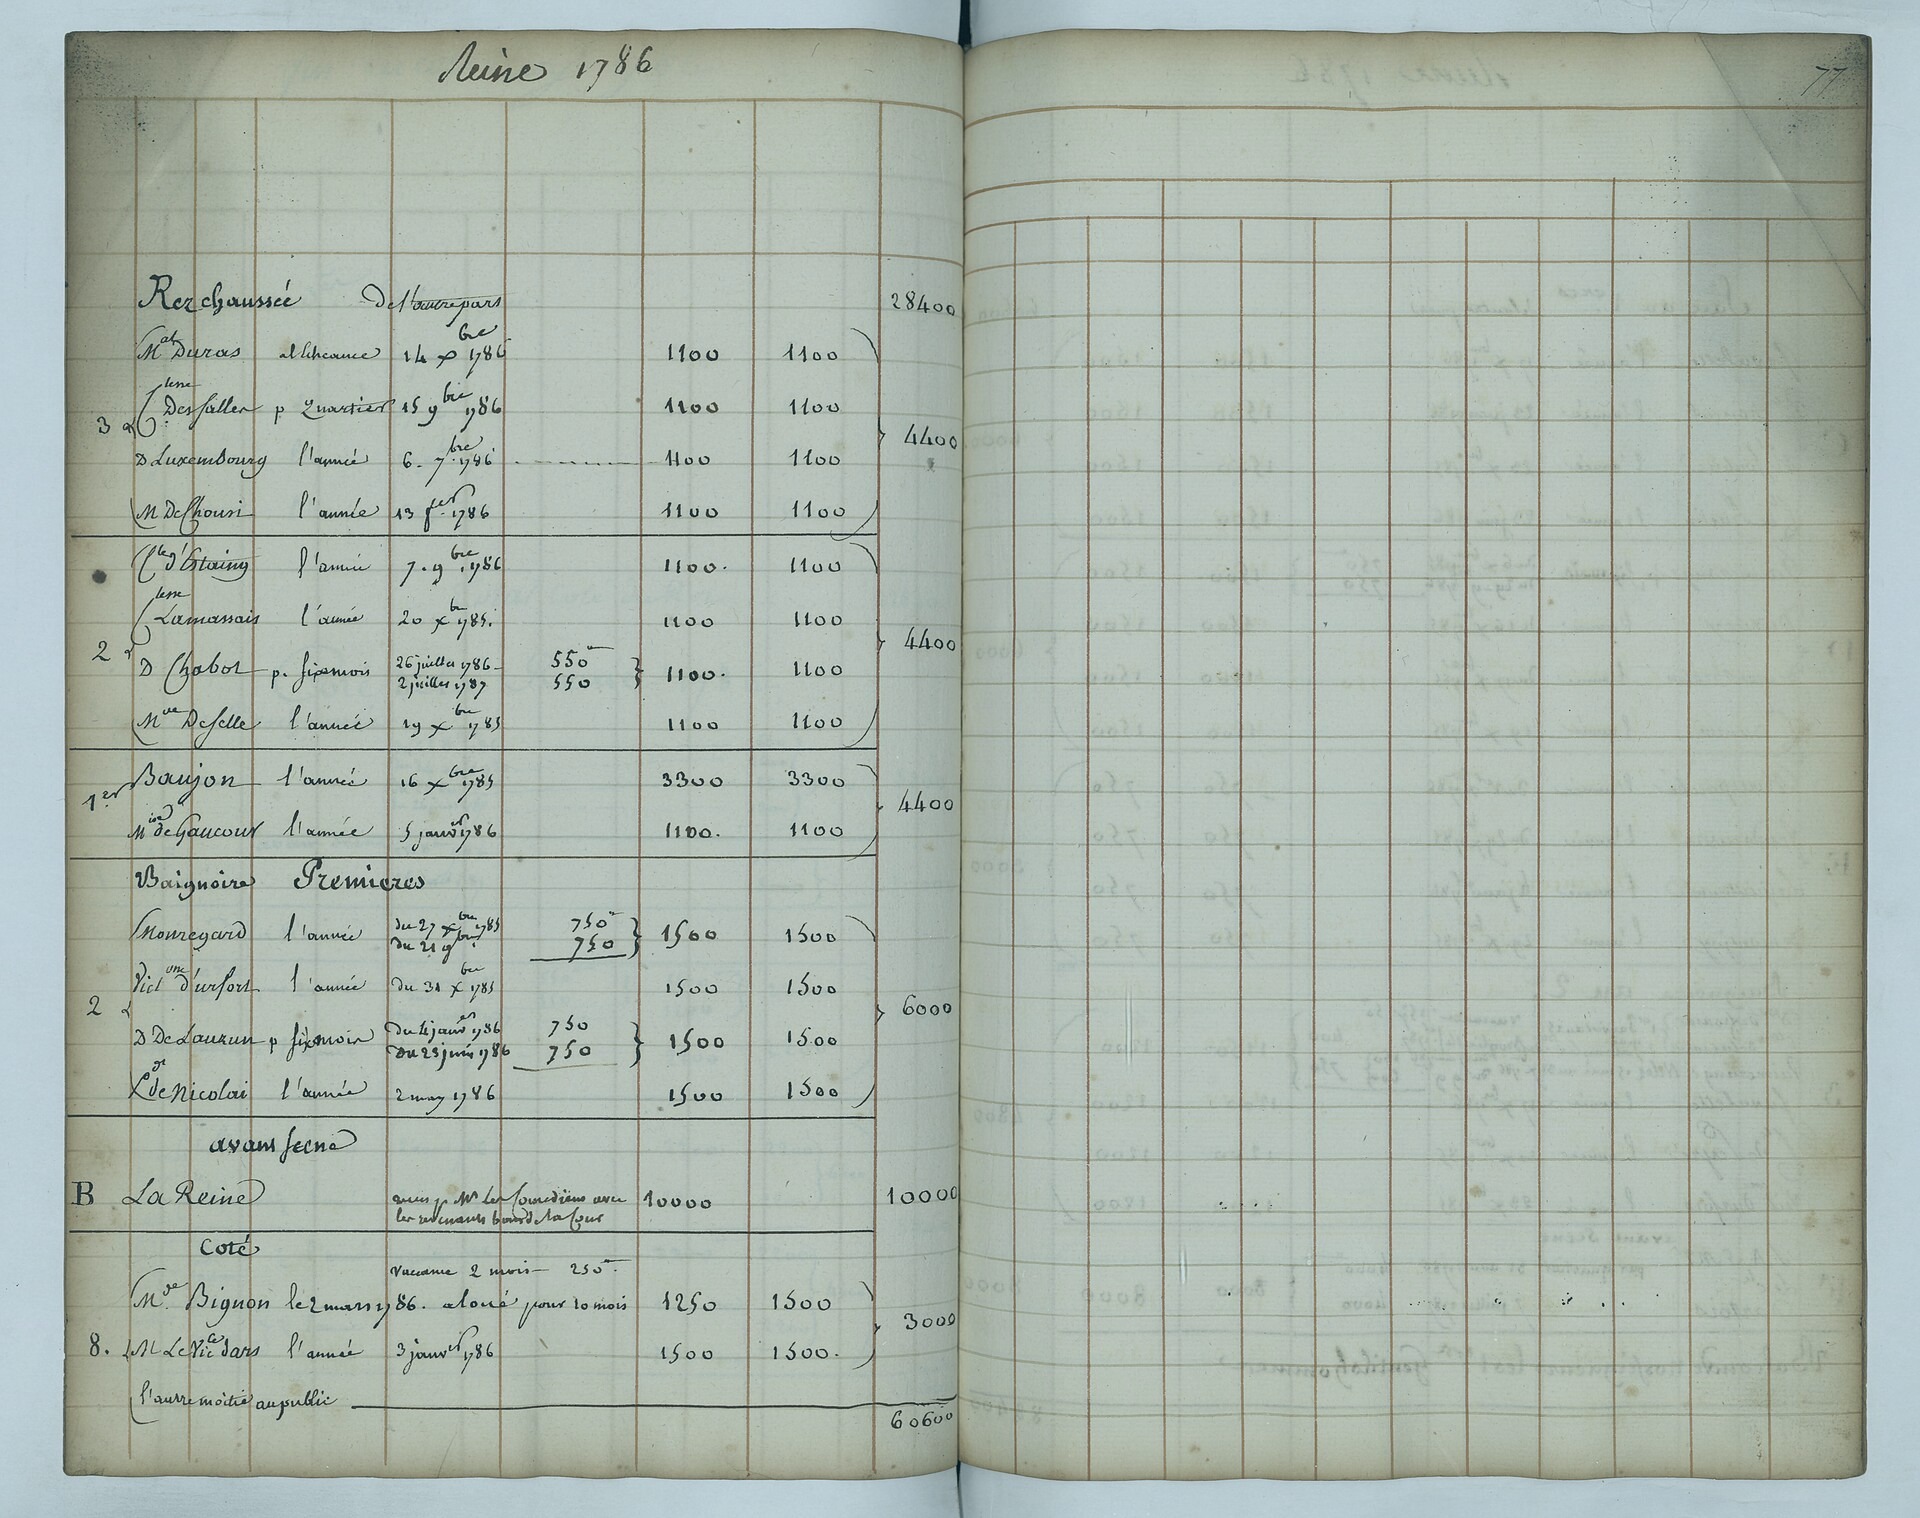 Reine 1786
77
Rez chaussée De l'autre pars 28400
M.al Duras 14 xbre 1786 1100 1100
3 Ctesse Desfaller p Quartier 15 9bre 1786 1100 1100
4400
D Luxembourg l'année 6. 7bre 1786 1100 1100
M De Chousi l'année 13 fer 1786 1100 1100
Cte d'Estaing l'année 7. 9bre 1786 1100. 1100
Ctesse Lamassais l'année 20 xbre 1785. 1100 1100
2 4400
D Chabot p. sixmois 26 juillet 1786 550 1100. 1100
2 juillet 1787 550
Mve Deselle l'année 19 xbre 1785 1100 1100
Baujon l'année 16 xbre 1785 3300 3300
1er 4400
Mise de Gaucour l'année 5 janver 1786 1100. 1100
Baignoire Premieres
Monregard l'année du 27 xbre 1785 750 1500 1500
du 21 9bre 750
Victme d'urfort l'année du 31 xbre 1785 1500 1500
2 6000
D De Lauzun p sixmois du 4 janver 1786 750 1500 1500
du 23 juin 1786 750
Lde de Nicolai l'année 2 may 1786 1500 1500
avans scene
B La Reine recu p Mrs les Comediens avec 10000 10000
les revenants bons de la Cour
Coté
Vaccance 2 mois 250
Mde Bignon le 2 mars 1786. aloué pour 10 mois 1250 1500
3000
8. M Le Victe dars l'année 3 janver 1786 1500 1500.
l'autre moitié au public
60600